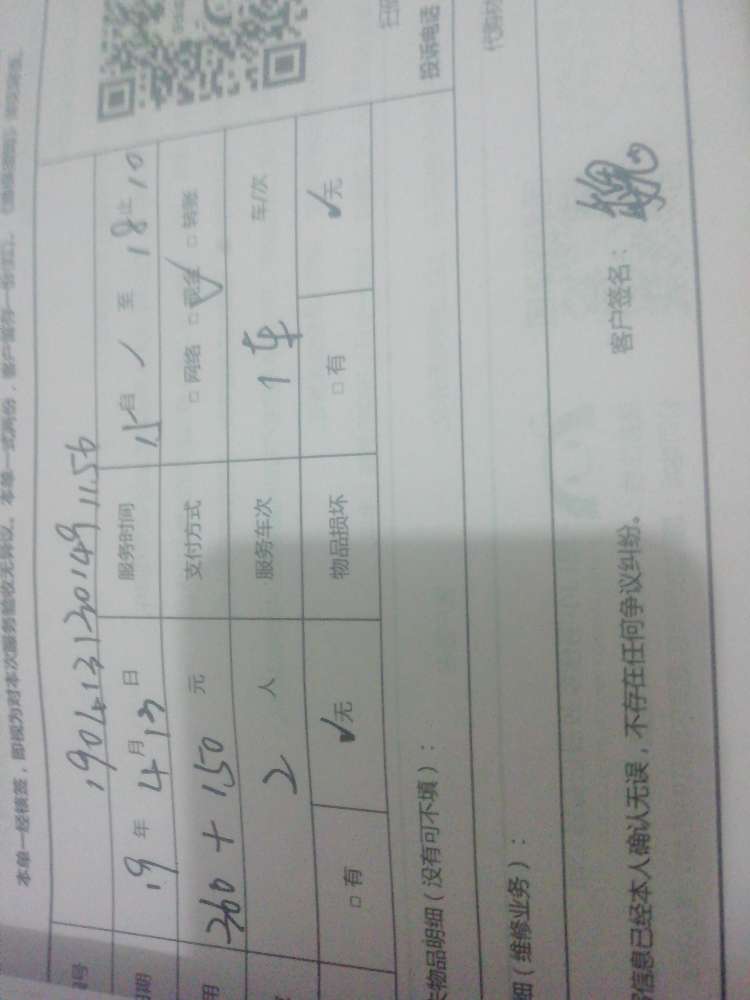 本单一经核签，即视为对本次服务验收无异议。本单一式两份，客户留存一份
号 190413130149 1156
期 19 年 4 月 13 日 服务时间 15 启 / 至 18 止 10
用 360 + 150 元 支付方式 □ 网络 □ 现金 ✓ □ 转账
2 人 服务车次 1车 车/次
□ 有 ✓无 物品损坏 □ 有 ✓无
物品明细（没有可不填）： 投诉电话
细（维修业务）：
客户签名： 魏
信息已经本人确认无误，不存在任何争议纠纷。